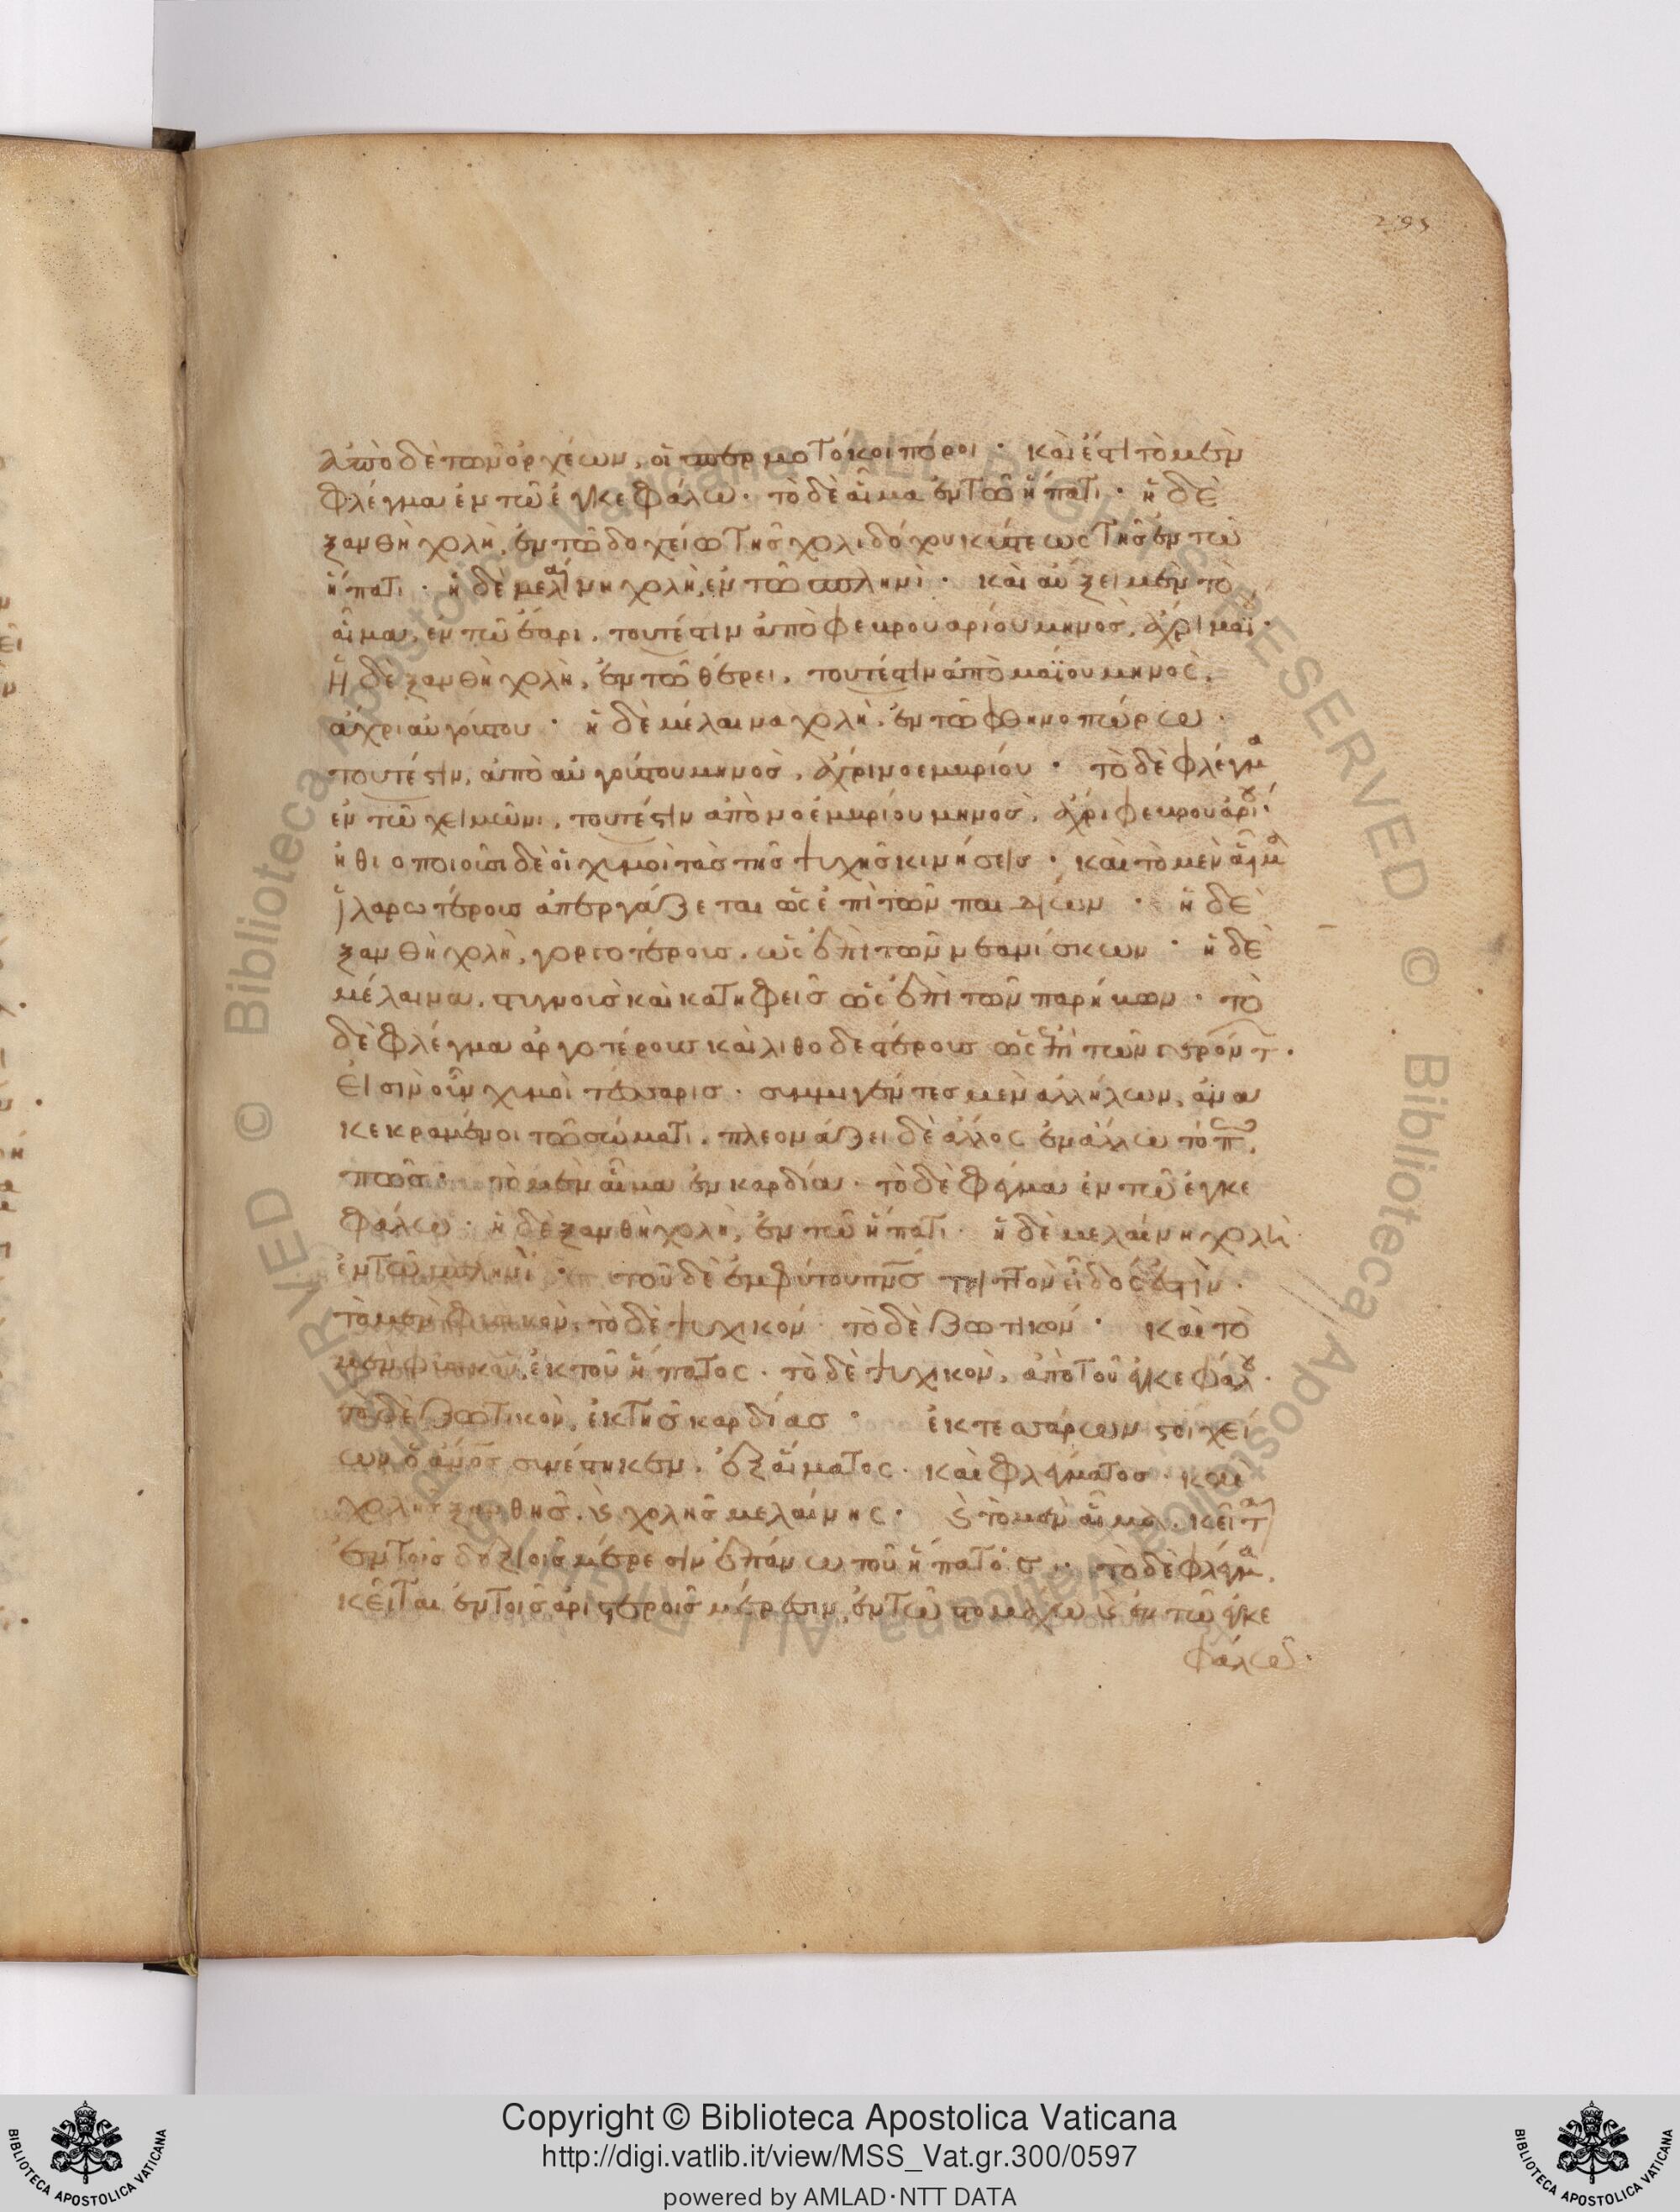 295
ἀπὸ δὲ τῶν ὀρχέων, οἱ σπερματικοὶ πόροι · καὶ ἔστι τὸ μὲν
φλέγμα ἐν τῶ ἐγκεφάλω · τὸ δὲ αἷμα ἐν τῶ ἥπατι · ἡ δὲ
ξανθὴ χολὴ, ἐν τῶ δοχείω τῆς χολιδόχου κύστεως τῆς ἐν τῶ
ἥπατι · ἡ δὲ μελαίνη χολὴ, ἐν τῶ σπληνὶ · καὶ αὔξει μὲν τὸ
αἷμα, ἐν τῶ ἔαρι, τουτέστιν ἀπὸ φευρουαρίου μηνὸς, ἄχρι μαΐ ·
ἡ δὲ ξανθὴ χολὴ, ἐν τῶ θέρει, τουτέστιν ἀπὸ μαΐου μηνὸς,
ἄχρι αὐγούστου · ἡ δὲ μέλαινα χολὴ, ἐν τῶ φθηνοπώρω ·
τουτέστιν, ἀπὸ αὐγούστου μηνὸς, ἄχρι νοεμυρίου · τὸ δὲ φλέγμα
ἐν τῶ χειμῶνι, τουτέστιν ἀπὸ νοεμυρίου μηνὸς, ἄχρι φευρουαρίου ·
ἠθιοποιοῦσι δὲ οἱ χυμοὶ τὰς τῆς ψυχῆς κινήσεις · καὶ τὸ μὲν αἷμα
ἱλαρωτέρους ἀπεργάζεται ὡς ἐπὶ τῶν παιδίων · ἡ δὲ
ξανθὴ χολὴ, γοργοτέρους, ὡς ἐπὶ τῶν νεανίσκων · ἡ δὲ
μέλαινα, στυγνοὺς καὶ κατηφεῖς ὡς ἐπὶ τῶν παρήκων · τὸ
δὲ φλέγμα ἀργοτέρους καὶ λιθοδεστέρους ὡς ἐπὶ τῶν γερόντ ·
Εἰσὶν οὖν χυμοὶ τέσσαρις · συμμιγέντες μὲν ἀλλήλων, ἅμα
κεκραμένοι τῶ σώματι, πλεονάζει δὲ ἄλλος ἐν ἄλλω τόπ,
πῶς · τὸ μὲν αἷμα ἐν καρδία · τὸ δὲ φλέγμα ἐν τῶ ἐγκε
φάλω · ἡ δὲ ξανθὴ χολὴ, ἐν τῶ ἥπατι · ἡ δὲ μελαίνη χολὴ
ἐν τῶ σπληνὶ · τοῦ δὲ ἐμφύτου πνς τριττὸν εἶδός ἐστὶν ·
τὸ μὲν φυσικὸν, τὸ δὲ ψυχικόν · τὸ δὲ ζωτικόν · καὶ τὸ
μὲν φυσικὸν, ἐκ τοῦ ἥπατος · τὸ δὲ ψυχικὸν, ἀπὸ τοῦ ἐγκεφάλου ·
τὸ δὲ ζωτικὸν, ἐκ τῆς καρδίας · ἐκ τεσσάρων στοιχεί
ων ὁ ἀνος συνέστηκεν, ἐξ αἵματος · καὶ φλέγματος · καὶ
χολῆς ξανθῆς, καὶ χολῆς μελαίνης · καὶ τὸ μὲν αἷμα, κεῖται
ἐν τοῖς δεξιοῖς μέρεσιν ἐπάνω τοῦ ἥπατός · τὸ δὲ φλέγμα,
κεῖται ἐν τοῖς ἀριστεροῖς μέρεσιν, ἐν τῶ στομάχω καὶ ἐν τῶ ἐγκε
φάλω ·
Copyright © Biblioteca Apostolica Vaticana
http://digi.vatlib.it/view/MSS_Vat.gr.300/0597
powered by AMLAD·NTT DATA
BIBLIOTECA APOSTOLICA VATICANA
BIBLIOTECA APOSTOLICA VATICANA